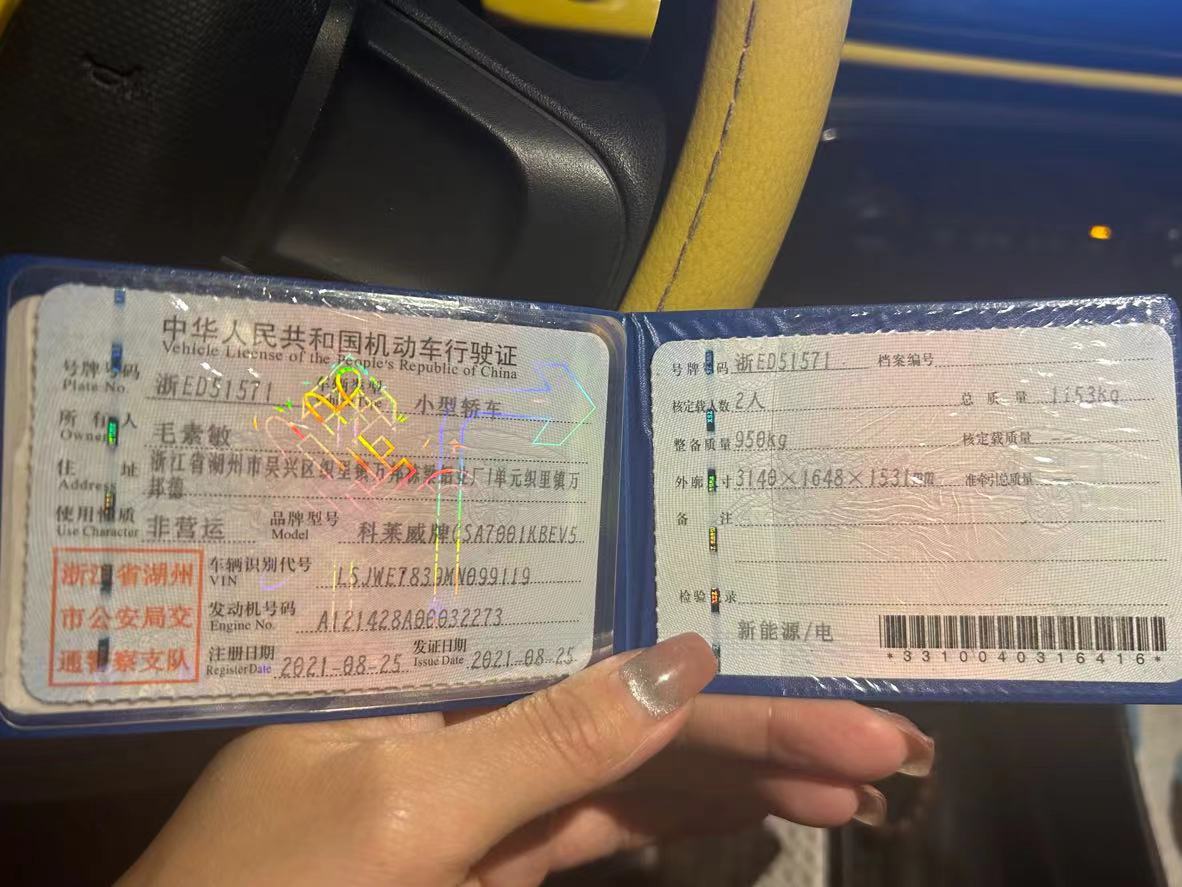 中华人民共和国机动车行驶证
Vehicle License of the People's Republic of China
号牌号码 浙ED51571 车辆类型 小型轿车
Plate No.
所有人 毛素敏
Owner
住址 浙江省湖州市吴兴区织里镇万邦德 铝业厂1单元织里镇万
Address 邦德
使用性质 非营运 品牌型号 科莱威牌CSA7001KBEV5
Use Character Model
浙江省湖州
市公安局交
通警察支队
车辆识别代号 L5JWE7839MN099119
VIN
发动机号码 A121428A00032273
Engine No.
注册日期 2021-08-25 发证日期 2021-08-25
Register Date Issue Date
号牌号码 浙ED51571 档案编号
核定载人数 2人 总质量 1153kg
整备质量 950kg 核定载质量 --
外廓尺寸 3140×1648×1531mm 准牵引总质量 --
备注
检验记录
新能源/电
*3310040316416*